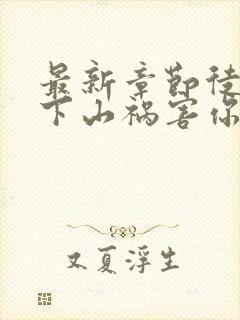 最新章节徒
下山祸害你
又夏浮生